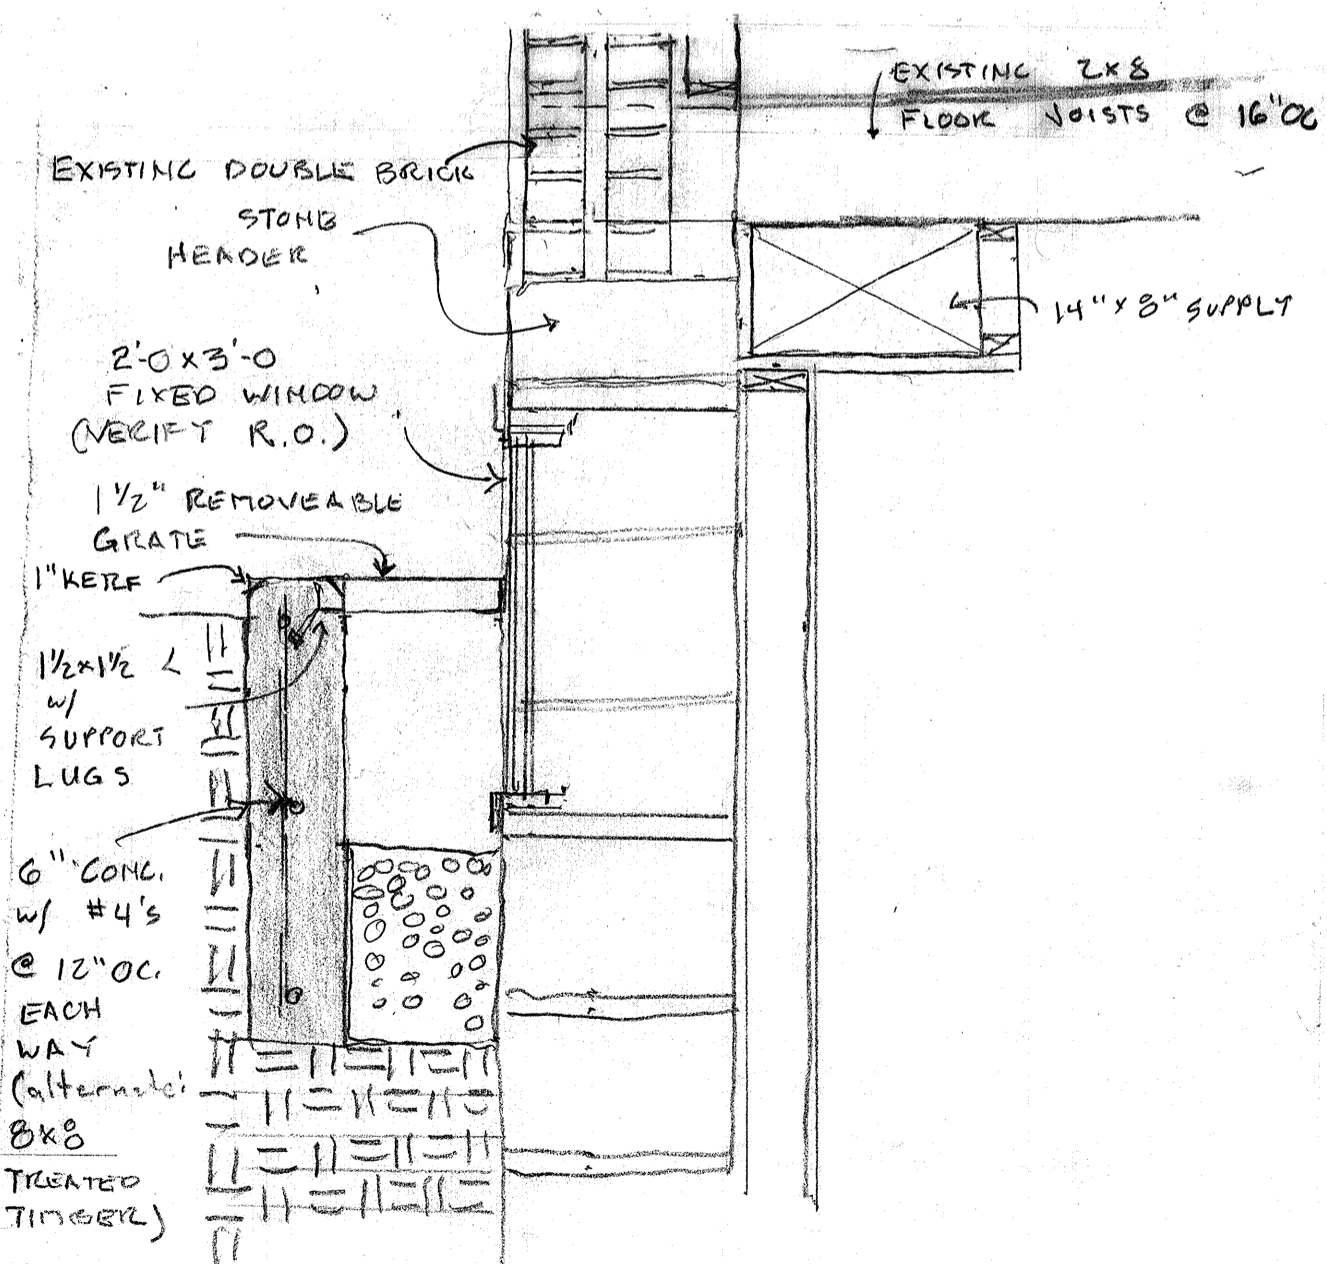 EXISTING 2x8
FLOOR JOISTS @ 16"OC
EXISTING DOUBLE BRICK
STONE
HEADER
14"x8" SUPPLY
2'-0x3'-0
FIXED WINDOW
(VERIFY R.O.)
1 1/2" REMOVEABLE
GRATE
1" KERF
1 1/2x1 1/2 L
w/
SUPPORT
LUGS
6" CONC.
w/ #4's
@ 12"OC.
EACH
WAY
(alternate:
8x8
TREATED
TIMBER)